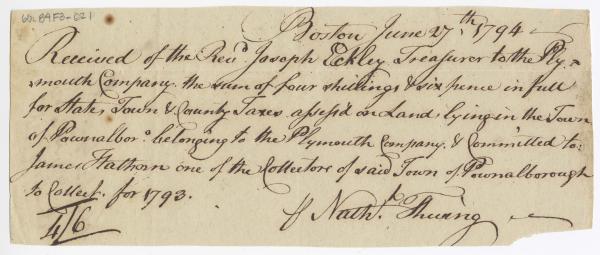 Boston June 27th, 1794
Received of the Revd. Joseph Eckley Treasurer to the Ply=
=mouth Company the sum of four shillings & six pence in full
for State, Town & County Taxes assess'd on Land lying in the Town
of Pownalboro. belonging to the Plymouth Company & Committed to:
James Hathorn one of the Collectors of said Town of Pownalborough
to Collect for 1793.
Nathl. Thwing
4/6